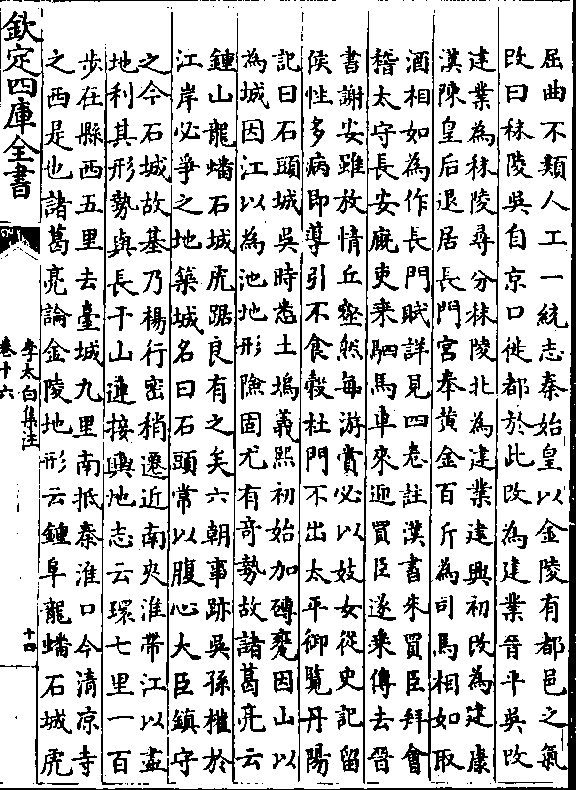 屈曲不類人工一統志秦始皇以金陵有都邑之氣
改曰秣陵吳自京口徙都於此改為建業晉平吳改
建業為秣陵尋分秣陵北為建業建興初改為建康
漢陳皇后退居長門宮奉黄金百斤為司馬相如取
酒相如為作長門賦詳見四卷註漢書朱買臣拜會
稽太守長安廐吏乗駟馬車來迎買臣遂乗傳去晉
書謝安雖放情丘壑然每游賞必以妓女從史記留
侯性多病即導引不食穀杜門不出太平御覽丹陽
記曰石頭城吳時悉土塢義熙初始加磚甓因山以
為城因江以為池地形險固尤有竒勢故諸葛亮云
鍾山龍蟠石城虎踞良有之矣六朝事跡吳孫權於
江岸必爭之地築城名曰石頭常以腹心大臣鎮守
之今石城故基乃楊行密稍遷近南夾淮帶江以盡
地利其形勢與長干山連接輿地志云環七里一百
步在縣西五里去臺城九里南抵秦淮口今清凉寺
之西是也諸葛亮論金陵地形云鍾阜龍蟠石城虎
欽定四庫全書
李太白集注
卷十六
十四